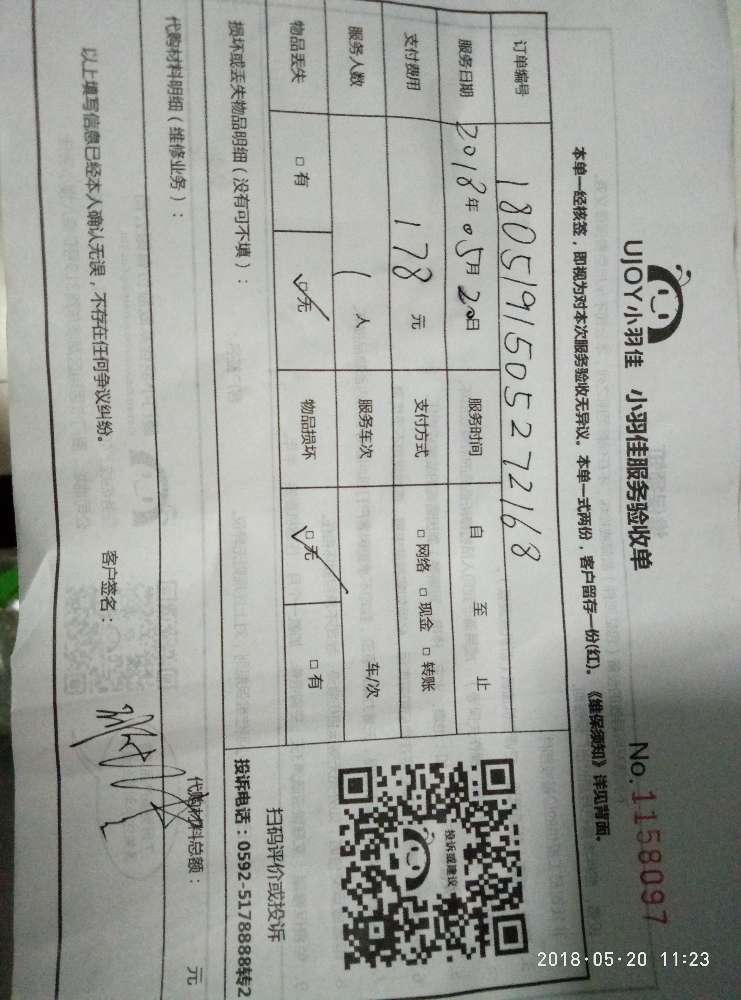 UJOY小羽佳 小羽佳服务验收单 No.1158097
本单一经核签，即视为对本次服务验收无异议。本单一式两份，客户留存一份(红)。《维保须知》详见背面。
订单编号 1805191505272168
服务日期 2018年05月20日 服务时间 自 至 止
支付费用 178元 支付方式 □网络 □现金 □转账
服务人数 1人 服务车次 车/次
物品丢失 □有 □无 物品损坏 □无 □有
投诉或建议
扫码评价或投诉
投诉电话：0592-5178888转2
损坏或丢失物品明细（没有可不填）：
代购材料明细（维修业务）： 代购材料总额： 元
以上填写信息已经本人确认无误，不存在任何争议纠纷。 客户签名：
2018-05-20 11:23